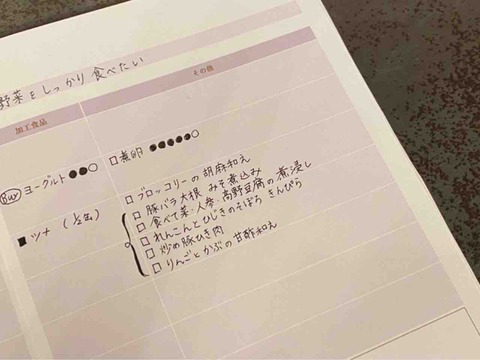 野菜をしっかり食べたい
加工食品
その他
Buy ヨーグルト ●●○
□煮卵 ●●●●●○
■ツナ (1/2缶)
□ブロッコリーの胡麻和え
□豚バラ大根 みそ煮込み
□食べて菜・人参・高野豆腐の煮浸し
□れんこんとひじきのそぼろ きんぴら
□炒め豚ひき肉
□りんごとかぶの甘酢和え